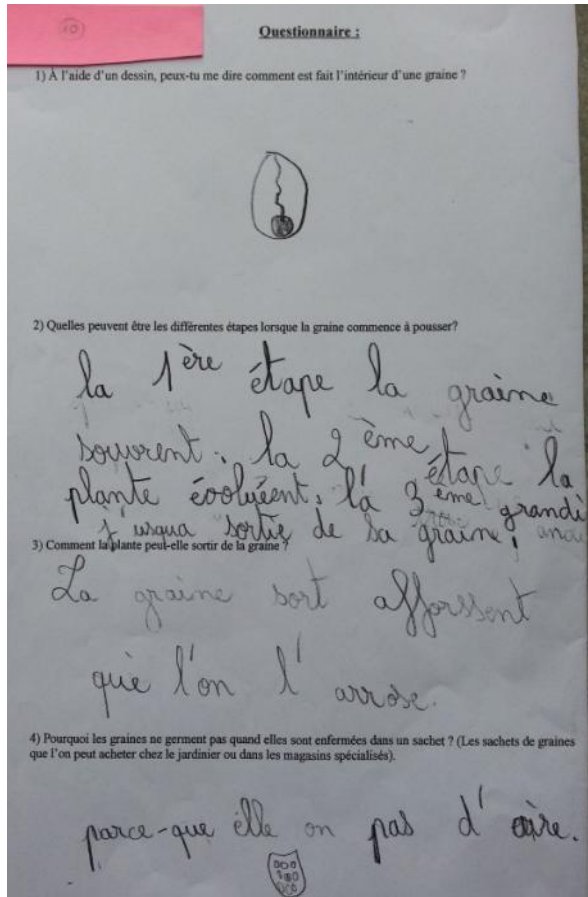 10
Questionnaire :
1) À l'aide d'un dessin, peux-tu me dire comment est fait l'intérieur d'une graine ?
2) Quelles peuvent être les différentes étapes lorsque la graine commence à pousser?
la 1ère étape la graine
souvrent. la 2ème étape la
plante évoluéent, la 3ème grande
jusqua sortie de sa graine,
3) Comment la plante peut-elle sortir de la graine ?
La graine sort afforssent
que l'on l' arrose.
4) Pourquoi les graines ne germent pas quand elles sont enfermées dans un sachet ? (Les sachets de graines
que l'on peut acheter chez le jardinier ou dans les magasins spécialisés).
parce-que elle on pas d' aire.